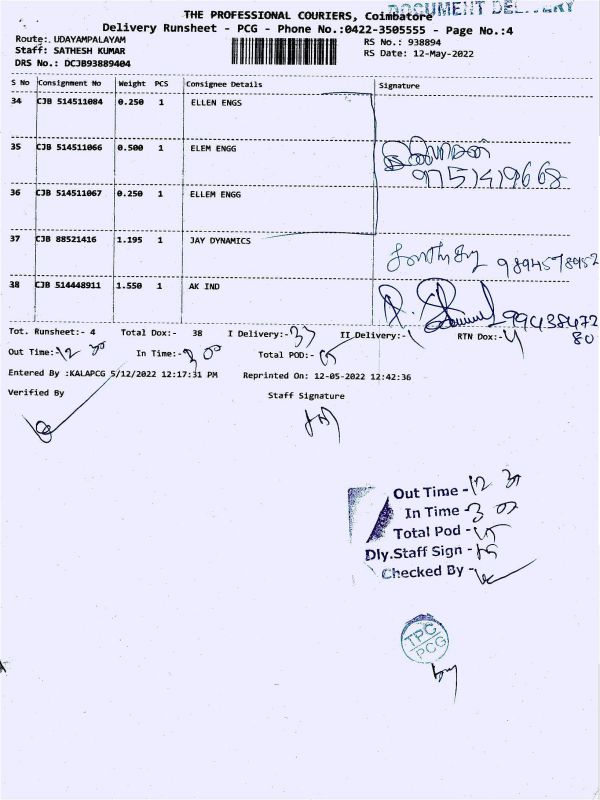 DOCUMENT DELIVERY
THE PROFESSIONAL COURIERS, Coimbatore
Delivery Runsheet - PCG - Phone No.:0422-3505555 - Page No.:4
Route:. UDAYAMPALAYAM RS No.: 938894
Staff: SATHESH KUMAR RS Date: 12-May-2022
DRS No.: DCJB93889404
S No Consignment No Weight PCS Consignee Details Signature
34 CJB 514511084 0.250 1 ELLEN ENGS
35 CJB 514511066 0.500 1 ELEM ENGG
9751419668
36 CJB 514511067 0.250 1 ELLEM ENGG
37 CJB 88521416 1.195 1 JAY DYNAMICS 9894578952
38 CJB 514448911 1.550 1 AK IND 9943847280
Tot. Runsheet:- 4 Total Dox:- 38 I Delivery:-37 II Delivery:- RTN Dox:-
Out Time:-12 30 In Time:-3 00 Total POD:-
Entered By :KALAPCG 5/12/2022 12:17:31 PM Reprinted On: 12-05-2022 12:42:36
Verified By Staff Signature
Out Time -12 30
In Time -3 00
Total Pod -
Dly.Staff Sign -
Checked By -
TPC
PCG